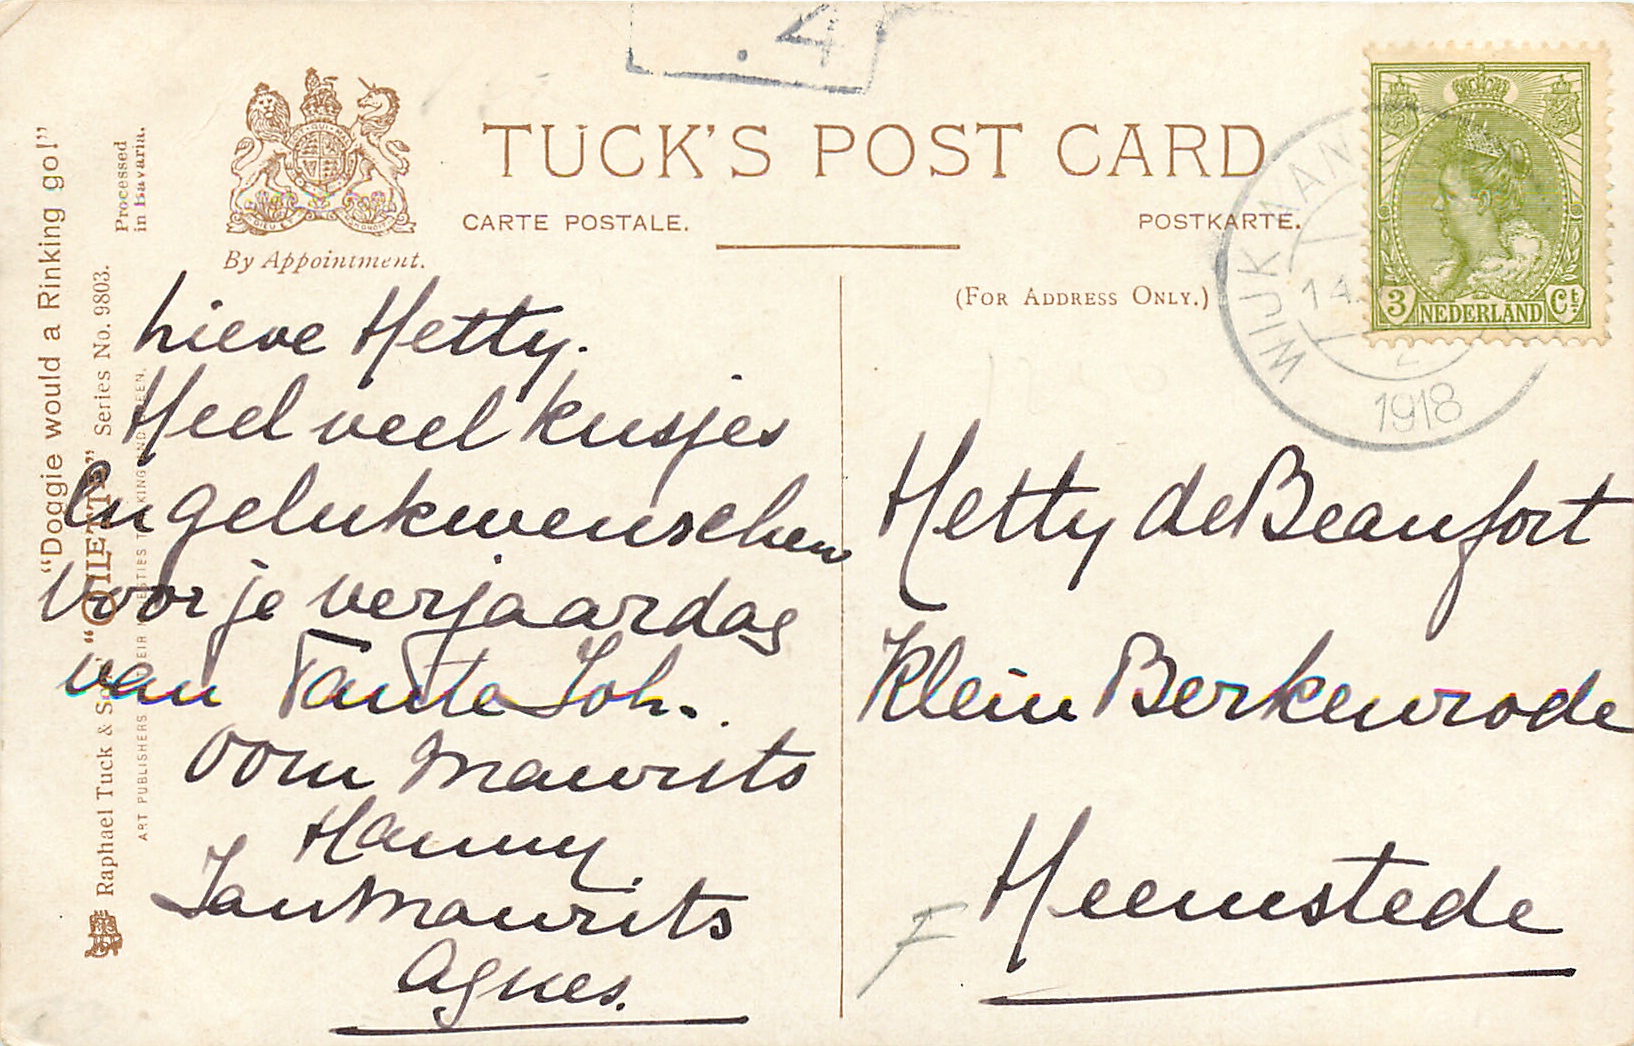 .4
TUCK'S POST CARD
CARTE POSTALE.
POSTKARTE.
By Appointment.
(FOR ADDRESS ONLY.)
"Doggie would a Rinking go!"
Processed
in Bavaria.
Raphael Tuck & "OILETTE" Series No. 9803.
ART PUBLISHERS
WIJK VAN
14.
1918
3 NEDERLAND Ct
Lieve Hetty.
Heel veel kusjes
en gelukwenschen
voor je verjaardag
van Tante Joh.
oom Maurits
Hanny
Jan Maurits
Agnes.
Hetty de Beaufort
Klein Berkenrode
Heemstede
F